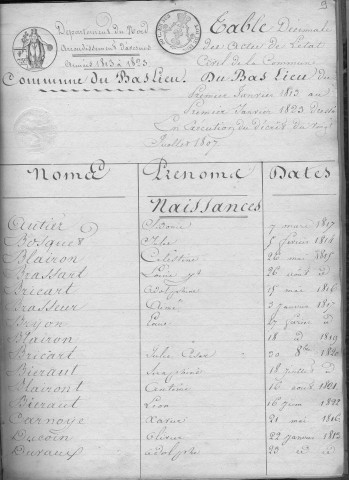 Département du Nord
Arrondissement d'avesnes
Années 1813 à 1823
Commune du Bas Lieu.
Table Décennale
des Actes de l'état
Civil de la Commune
Du Bas Lieu du
Premier Janvier 1813 au
Premier Janvier 1823 dressé
En exécution du décret du vingt
Juillet 1807
Noms Prénoms Dates
Naissances
Autier 7 mars 1817
Bosquet 5 février 1814
Blairon Célestine 22 mai 1815
Brassart Louise 26 août
Bricart adolphine 15 mai 1816
Brasseur Aimé 3 janvier 1817
Bryon
Blairon 18 d 1819
Bricart Julie 30 8bre 1820
Bieraut Seraphine 18 juillet d
Blairont 16 1821
Bieraut Léon 16 juin 1822
Carnoye Xavier 21 mai 1816
Ducoin Olivier 22 janvier 1813
Duvaux adolphe 23 d d